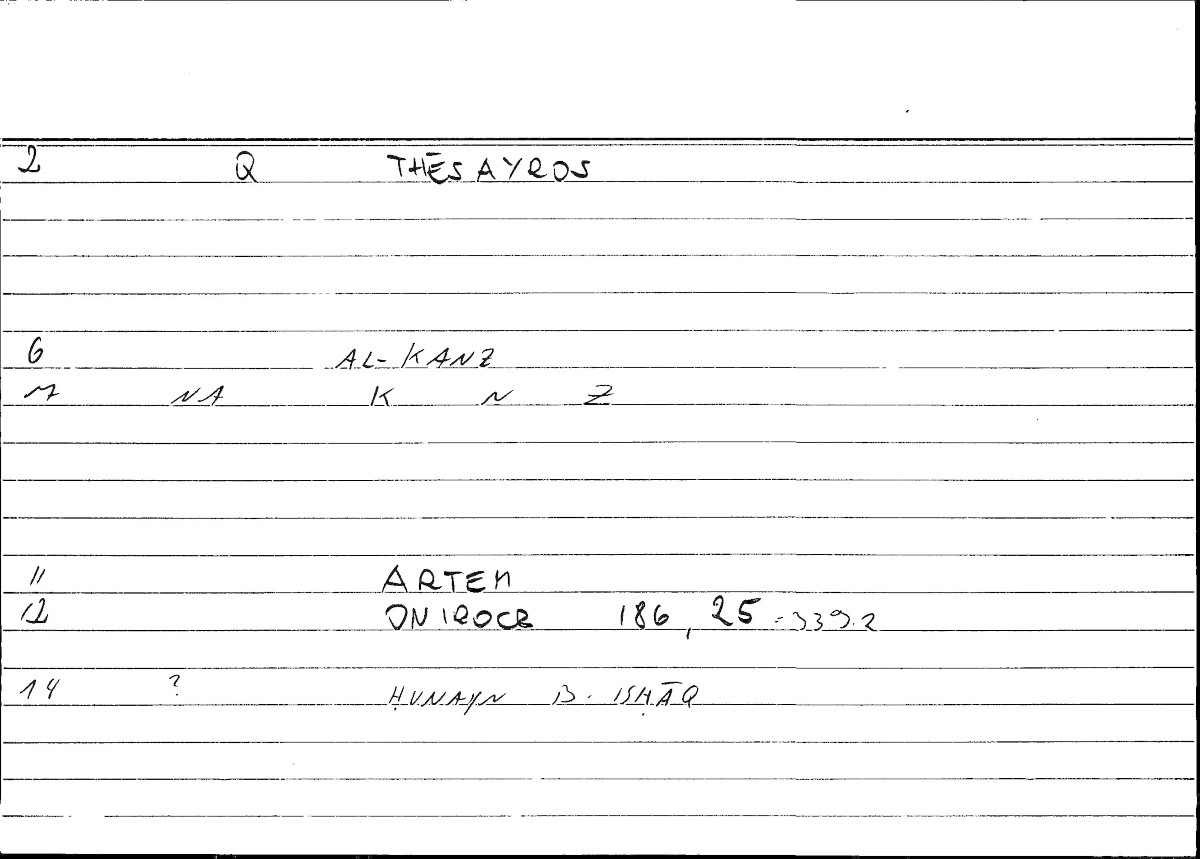 2 Q THĒSAYROS
6 AL-KANZ
7 NA K N Z
11 ARTEM
12 ONIROCR 186, 25 = 339.2
14 ? ḤUNAYN B. ISḤĀQ